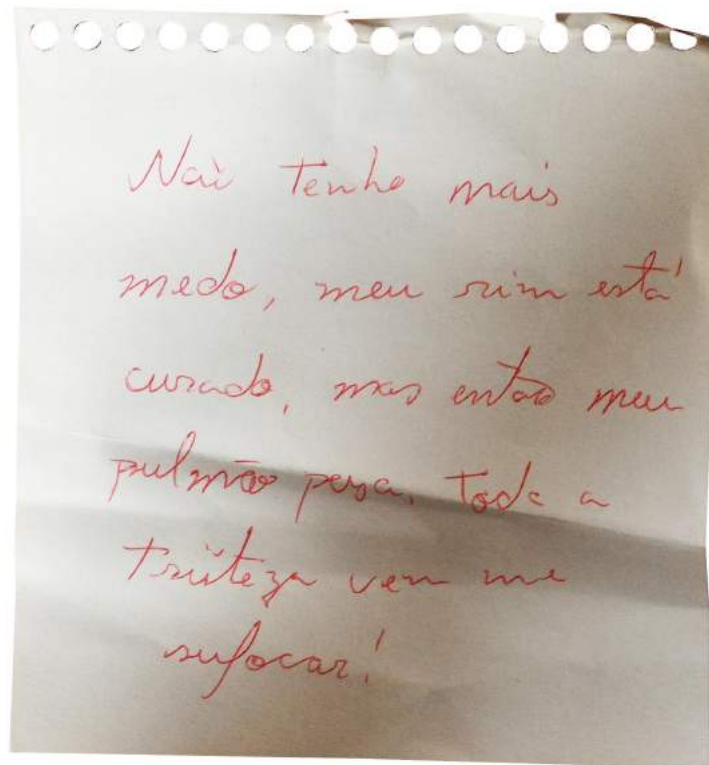 Não tenho mais
medo, meu rim está
curado, mas então meu
pulmão pesa. Toda a
tristeza vem me
sufocar!